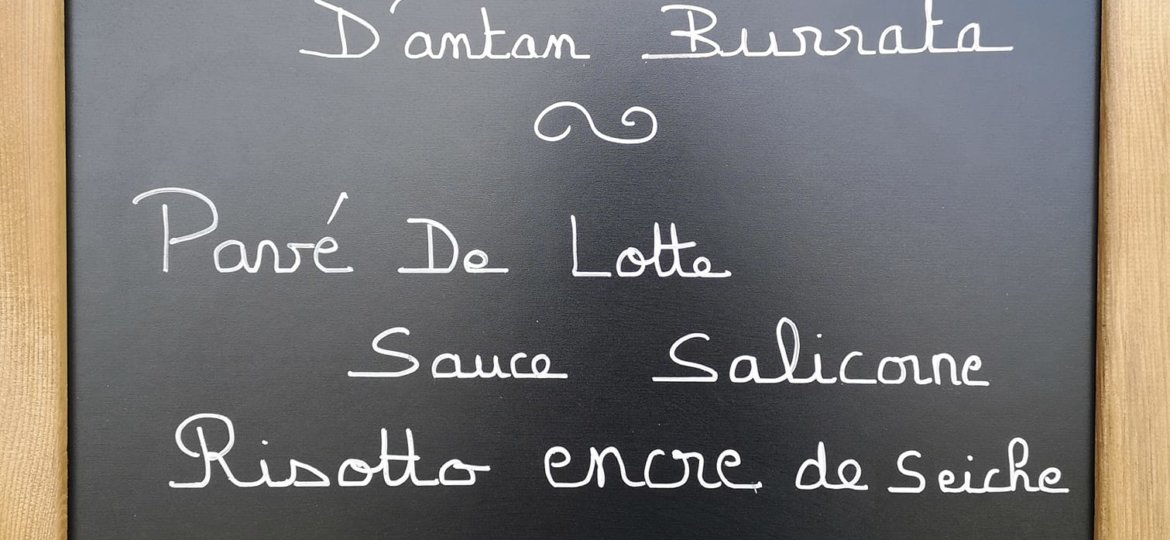 D'antan Burrata
Pavé De Lotte
Sauce Salicorne
Risotto encre de Seiche